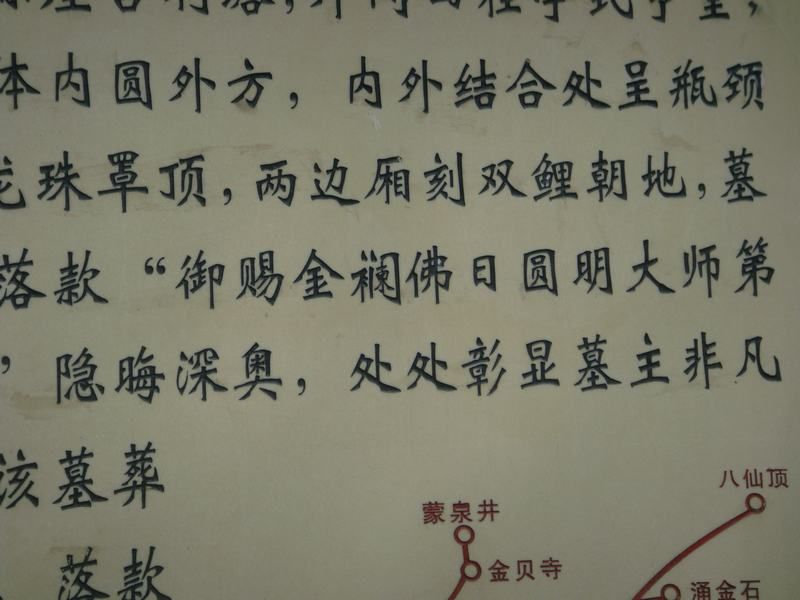 体内圆外方，内外结合处呈瓶颈
龙珠罩顶，两边厢刻双鲤朝地，墓
落款“御赐金襕佛日圆明大师第
”隐晦深奥，处处彰显墓主非凡
该墓葬
落款
八仙顶
蒙泉井
金贝寺
涌金石